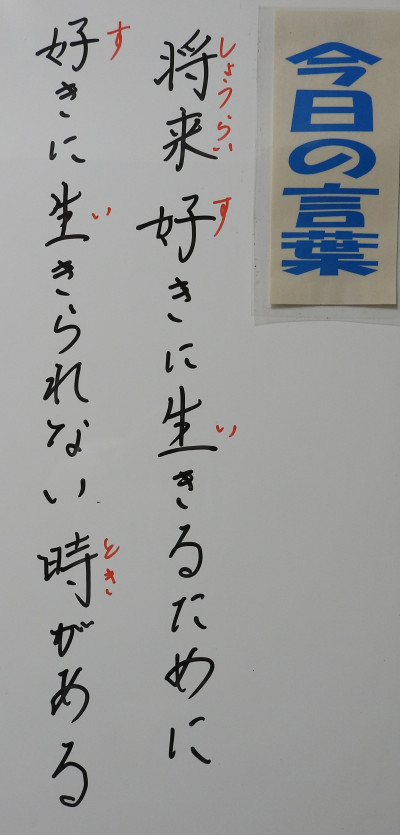 今日の言葉
将来好きに生きるために
好きに生きられない時がある
しょうらい
す
い
す
い
とき